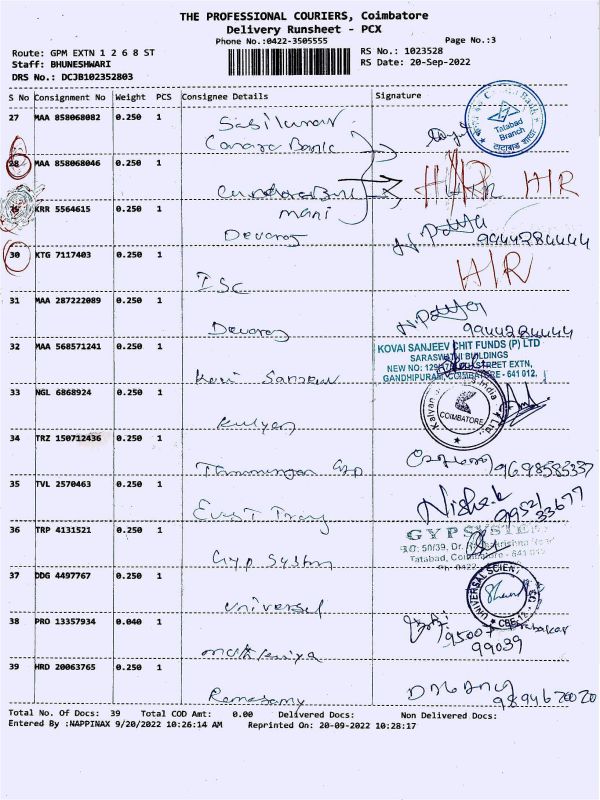 THE PROFESSIONAL COURIERS, Coimbatore
Delivery Runsheet - PCX
Phone No.:0422-3505555 Page No.:3
Route: GPM EXTN 1 2 6 8 ST RS No.: 1023528
Staff: BHUNESHWARI RS Date: 20-Sep-2022
DRS No.: DCJB102352803
S No Consignment No Weight PCS Consignee Details Signature
27 MAA 858068082 0.250 1 Sasikumar
Canara Bank
Tatabad
Branch
28 MAA 858068046 0.250 1 H/R H/R
mani
29 KRR 5564615 0.250 1 Devaraj 9944284444
30 KTG 7117403 0.250 1 ISC H/R
31 MAA 287222089 0.250 1 Devaraj 9944284444
32 MAA 568571241 0.250 1 Kovai Sanjeev
KOVAI SANJEEV CHIT FUNDS (P) LTD
SARASWATHI BUILDINGS
NEW NO: STREET EXTN,
GANDHIPURAM, COIMBATORE - 641 012.
33 NGL 6868924 0.250 1 Kalyan
COIMBATORE
34 TRZ 150712436 0.250 1 9698585337
35 TVL 2570463 0.250 1 Nishak 99521
33677
36 TRP 4131521 0.250 1 Gyp System
GYP SYSTEMS
50/39, Dr.
Tatabad, Coimbatore - 641 012
Ph: 0422
37 DDG 4497767 0.250 1 Universal
UNIVERSAL SCIENTI
CBE - 12
38 PRO 13357934 0.040 1 95007
99039
39 HRD 20063765 0.250 1 Ramasamy 9894620020
Total No. Of Docs: 39 Total COD Amt: 0.00 Delivered Docs: Non Delivered Docs:
Entered By :NAPPINAX 9/20/2022 10:26:14 AM Reprinted On: 20-09-2022 10:28:17